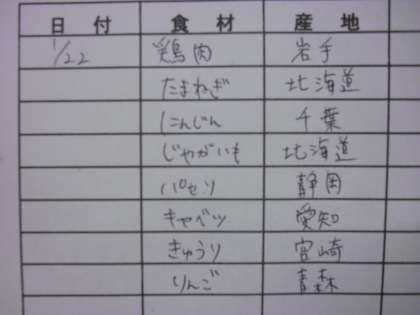 日付 食材 産地
1/22 鶏肉 岩手
たまねぎ 北海道
にんじん 千葉
じゃがいも 北海道
パセリ 静岡
キャベツ 愛知
きゅうり 宮崎
りんご 青森